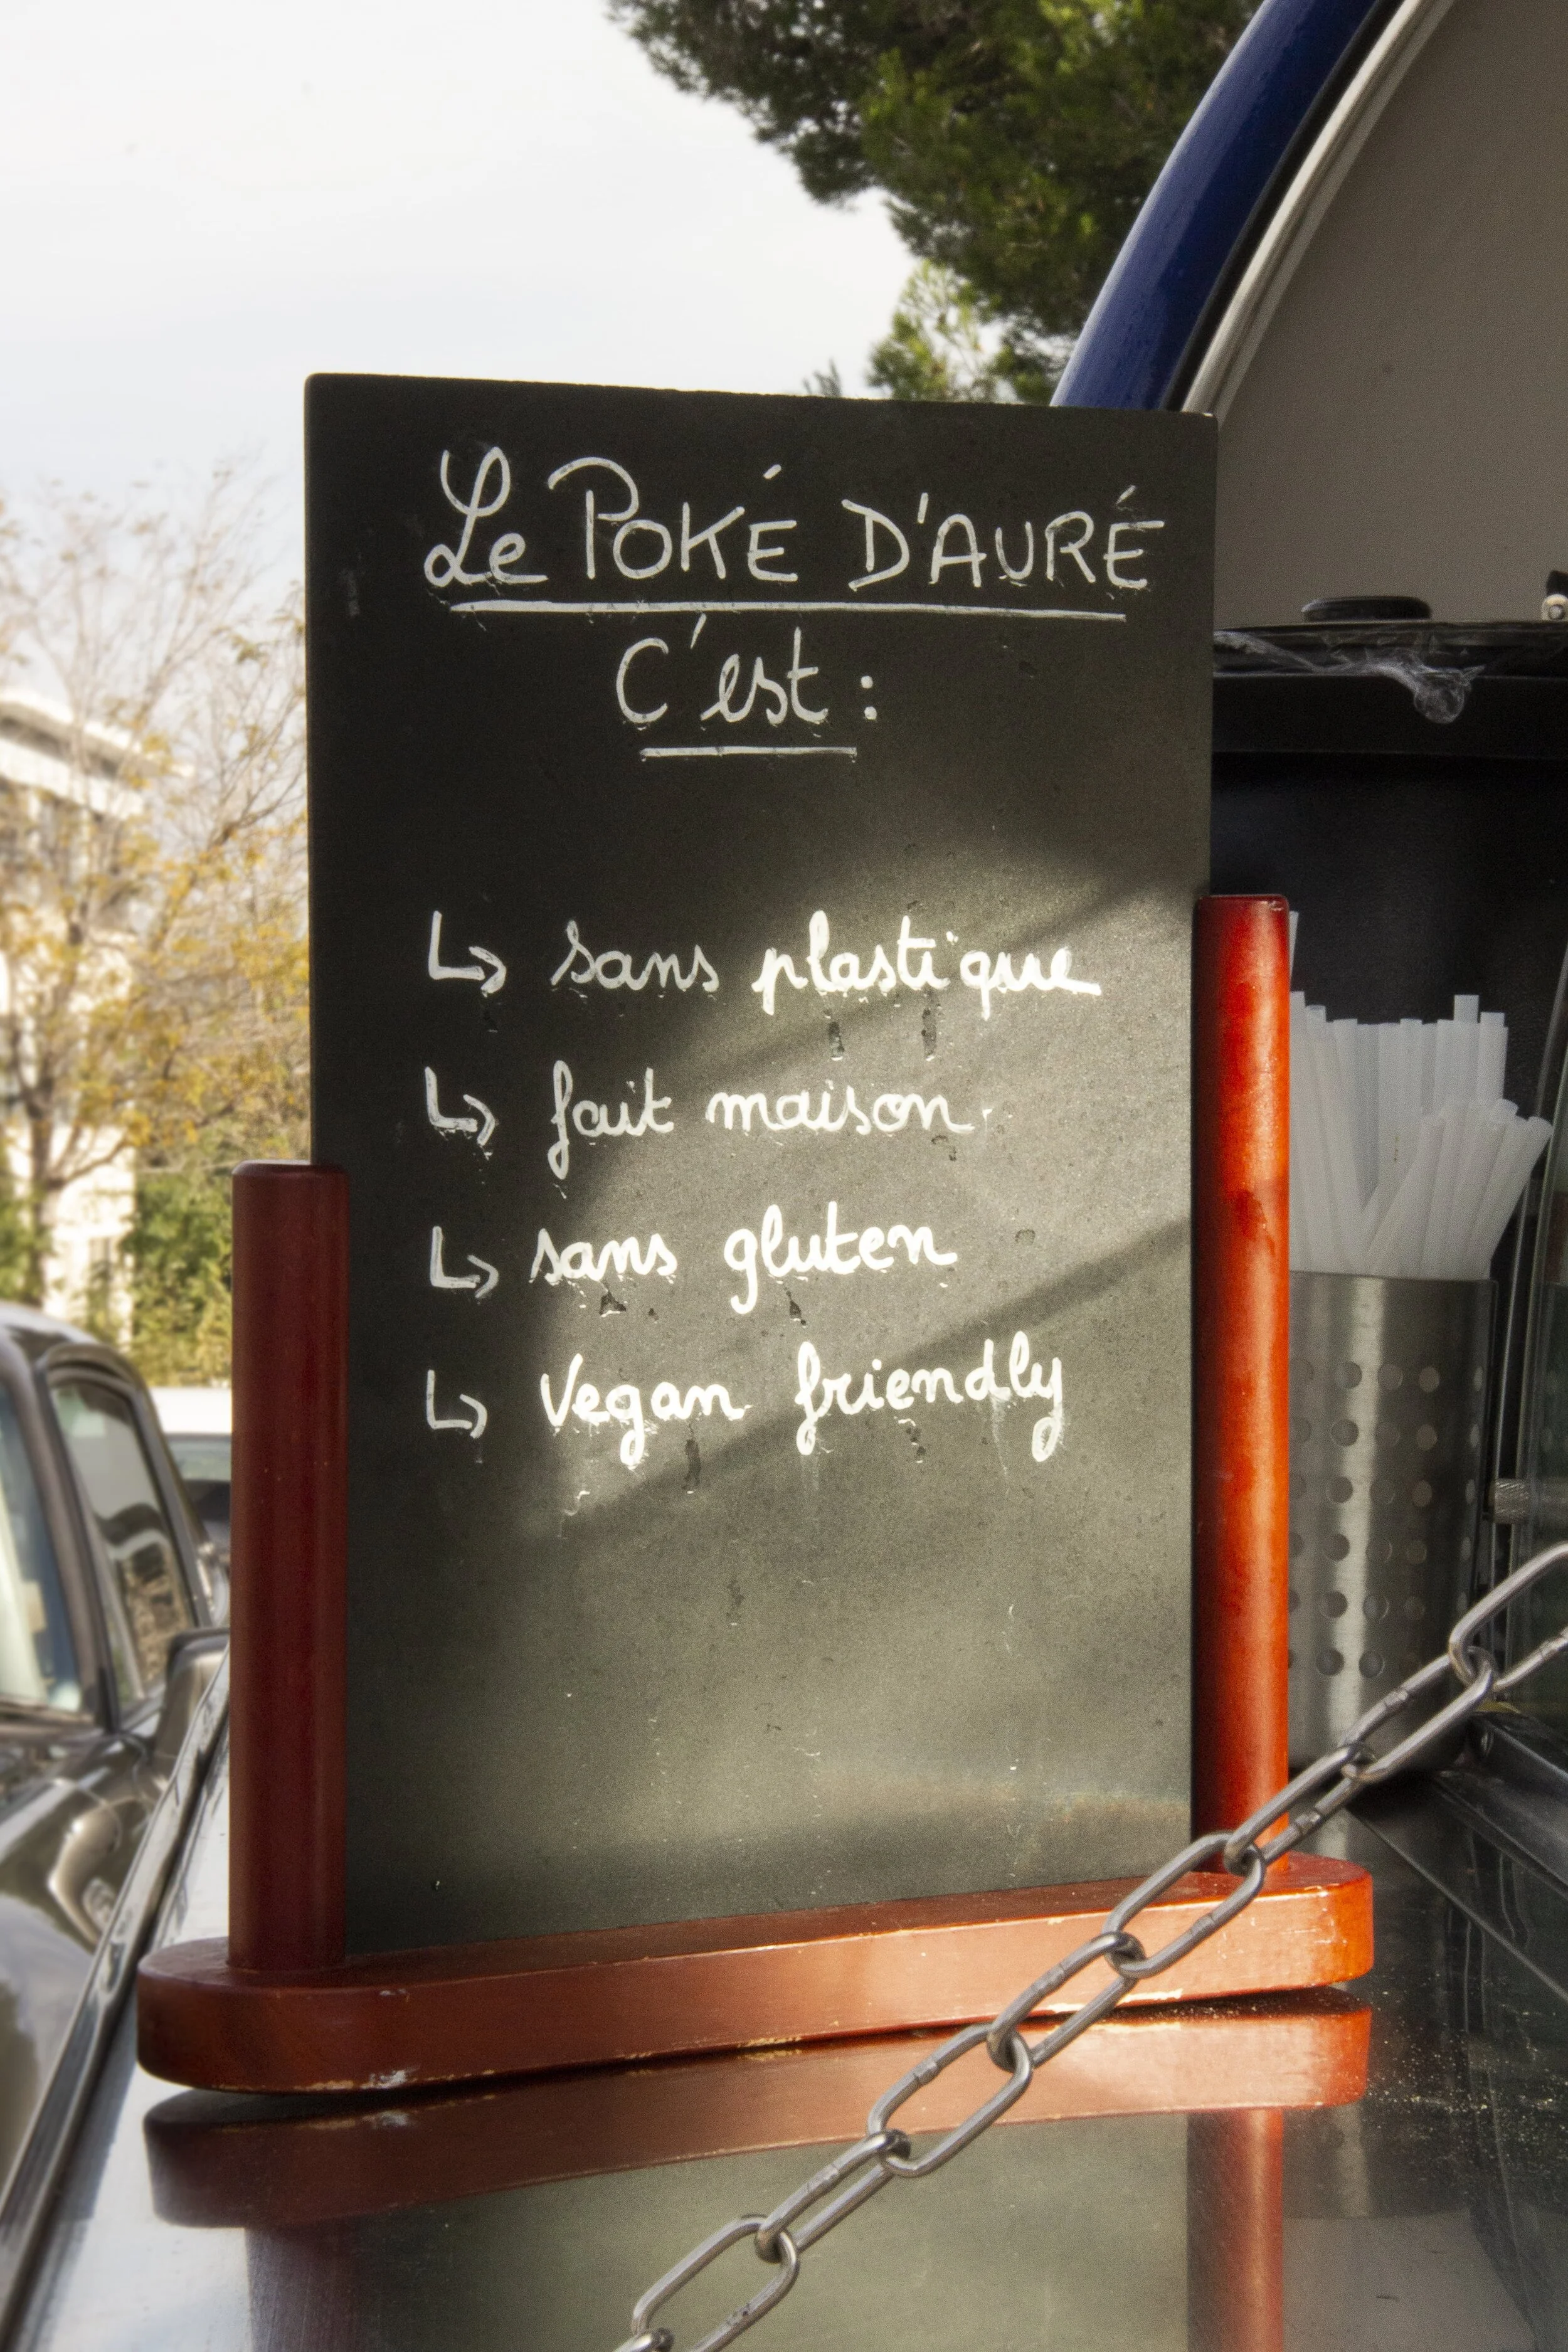 Le POKÉ D'AURÉ
C'est :
↳ sans plastique
↳ fait maison
↳ sans gluten
↳ Vegan friendly